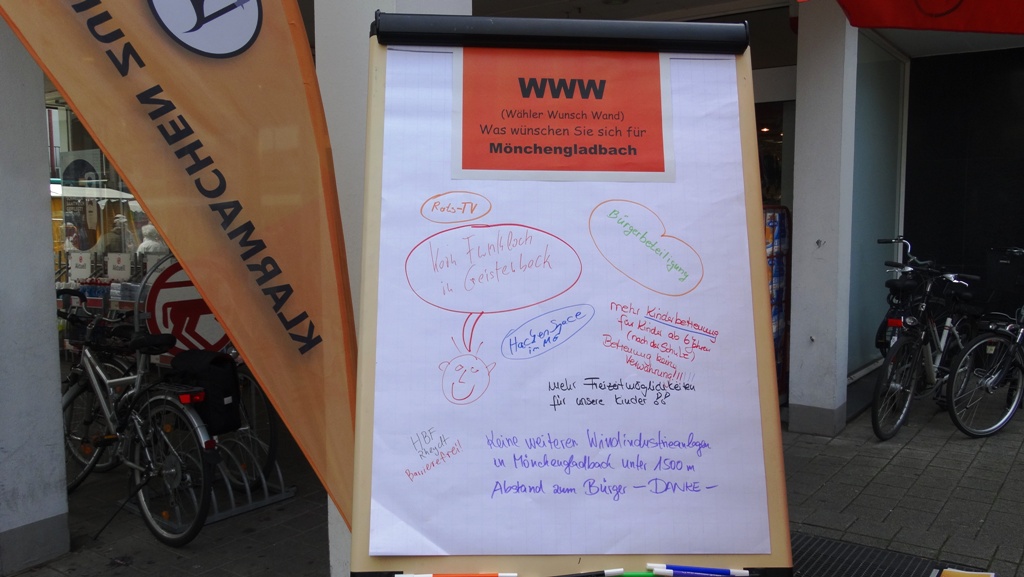 KLARMACHEN ZUM
WWW
(Wähler Wunsch Wand)
Was wünschen Sie sich für
Mönchengladbach
Rats-TV
Kein Funkloch
in Geistenbeck
Bürgerbeteiligung
HackerSpace
in MG
mehr Kinderbetreuung
für Kinder ab 6 Jahren
(nach der Schule)
Betreuung keine
Verwahrung!!!
mehr Freizeitmöglichkeiten
für unsere Kinder !!
HBF
Rheydt
Barrierefrei!
Keine weiteren Windindustrieanlagen
in Mönchengladbach unter 1500 m
Abstand zum Bürger – DANKE –